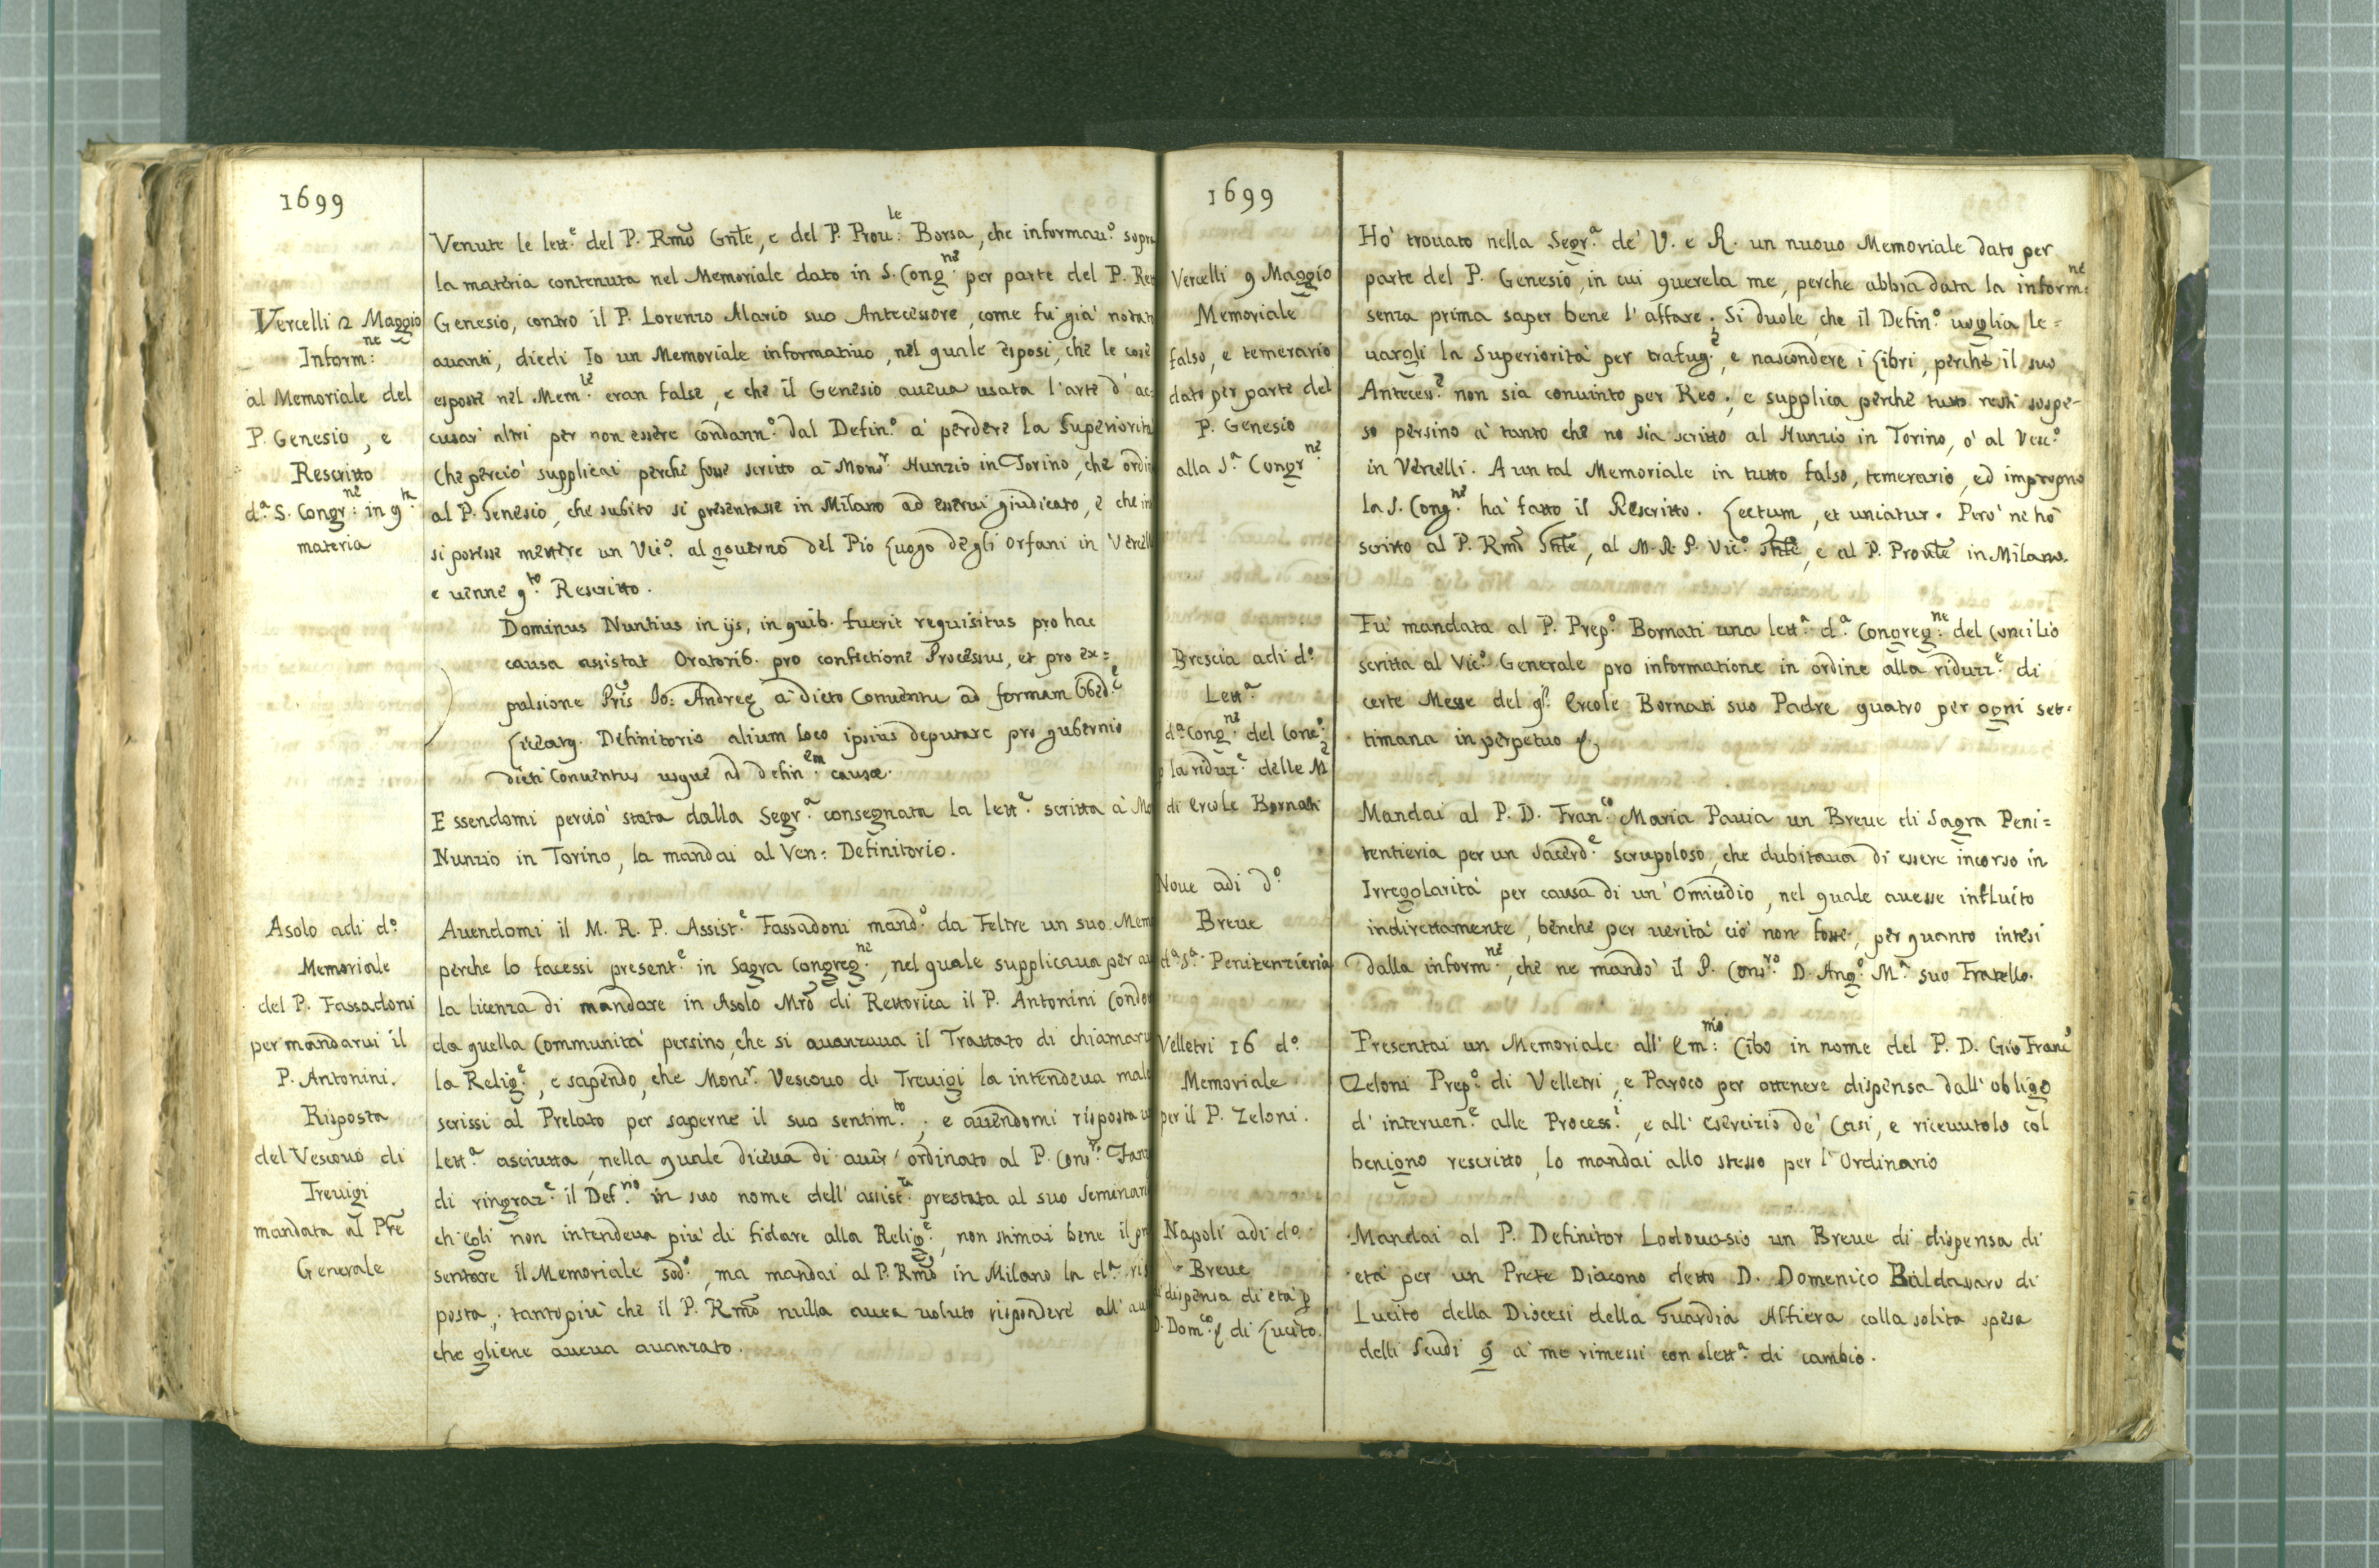 1699
Vercelli 2 Maggio
Inform:ne
al Memoriale del
P. Genesio, e
Rescritto
d.a S. Congr:ne in q.ta
materia
Venute le lett.e del P. Rmo Gnle, e del P. Prou:le Borsa, che informau.o
la materia contenuta nel Memoriale dato in S. Cong.ne per parte del P.
Genesio, contro il P. Lorenzo Alario suo Antecessore, come fu già
auanti, diedi Io un Memoriale informatiuo, nel quale esposi, che le cose
esposte nel Mem.le eran false, e che il Genesio aueua usata l'arte d'ac=
cusar altri per non essere condann.o dal Defin.o à perdere la
Che perciò supplicai perche fosse scritto à Mons.r Nunzio in Torino, che
al P. Genesio, che subito si presentasse in Milano ad esserui giudicato, e che
si potesse mettere un Vic.o al gouerno del Pio Luogo degli Orfani in
e uenne q.to Rescritto.
Dominus Nuntius in ijs, in quib. fuerit requisitus pro hac
causa assistat Oratorib. pro confectione Processus, et pro ex=
pulsione Pris Jo: Andreę à dicto Conuentu ad formam
Definitorio alium loco ipsius deputare pro gubernio
dicti Conuentus usque ad defin.em causæ.
Essendomi perciò stata dalla Segr.a consegnata la lett.a scritta à
Nunzio in Torino, la mandai al Ven: Definitorio.
Asolo adi d.o
Memoriale
del P. Fassadoni
per mandarui il
P. Antonini.
Risposta
del Vescouo di
Treuigi
mandata al Pre
Generale
Auendomi il M. R. P. Assist.e Fassadoni mand.o da Feltre un suo
perche lo facessi present.e in Sagra Congreg.ne, nel quale supplicaua per
la licenza di mandare in Asolo Mro di Rettorica il P. Antonini
da quella Communità persino, che si auanzaua il Trattato di
la Relig.e, e sapendo, che Mons.r Vescouo di Treuigi la intendeua
scrissi al Prelato per saperne il suo sentim.to; e auendomi risposta
lett.a asciutta, nella quale diceua di auer' ordinato al P. Cons.ro
di ringraz.e il Def.no in suo nome dell' assist.za prestata al suo
ch'egli non intendeua più di fidare alla Relig.e, non stimai bene il
sentare il Memoriale sod.o, ma mandai al P. Rmo in Milano la d.a
posta; tanto più che il P. Rmo nulla auea uoluto rispondere all'
che gliene aueua auanzato.
1699
Vercelli 9 Maggio
Memoriale
falso, e temerario
dato per parte del
P. Genesio
alla S.a Congr.ne
Ho' trouato nella Segr.a de' V. e R. un nuouo Memoriale dato per
parte del P. Genesio, in cui querela me, perche abbia data la inform:ne
senza prima saper bene l'affare. Si duole, che il Defin.o uoglia le=
uargli la Superiorità per trafug.e, e nascondere i Libri, perche il suo
Antecess.e non sia conuinto per Reo; e supplica perche tutto resti sospe=
so persino à tanto che no sia scritto al Nunzio in Torino, ò al Vesc.o
in Vercelli. A un tal Memoriale in tutto falso, temerario, ed improprio
la S. Cong.ne hà fatto il Rescritto. Lectum, et uniatur. Però ne hò
scritto al P. Rmo Gnle, al M. R. P. Vic.o Gnle, e al P. Prounle in Milano.
Brescia adi d.o
Lett.a
d.a Cong.ne del Conc.o
p la riduz.e delle M
di Ercole Bornati
Fu' mandata al P. Prep.o Bornati una lett.a d.a Congreg.ne del Concilio
scritta al Vic.o Generale pro informatione in ordine alla riduzz.e di
certe Messe del q. Ercole Bornati suo Padre quatro per ogni set=
timana in perpetuo
Noue adi d.o
Breue
d.a S.a Penitenzieria
Mandai al P. D. Fran.co Maria Pauia un Breue di Sagra Peni=
tentieria per un Sacerd.e scrupoloso, che dubitaua di essere incorso in
Irregolarità per causa di un' Omicidio, nel quale auesse influito
indirettamente, benche per uerità ciò non fosse, per quanto intesi
dalla inform.ne, che ne mandò il P. Cons.ro D. Ang.o M.a suo Fratello.
Velletri 16 d.o
Memoriale
per il P. Zeloni.
Presentai un Memoriale all' Em:mo Cibo in nome del P. D. Gio Franc.o
Zeloni Prep.o di Velletri, e Paroco per ottenere dispensa dall' obligo
d' interuen.e alle Process.i, e all' esercizio de' Casi, e riceuutolo col
benigno rescritto, lo mandai allo stesso per l'Ordinario
Napoli adi d.o
Breue
dispensa di età p
D. Dom.co di Lucito.
Mandai al P. Definitor Lodouasio un Breue di dispensa di
età per un Prete Diacono detto D. Domenico Baldavaro di
Lucito della Diocesi della Guardia Alfiera colla solita spesa
delli Scudi 9 à me rimessi con lett.a di cambio.